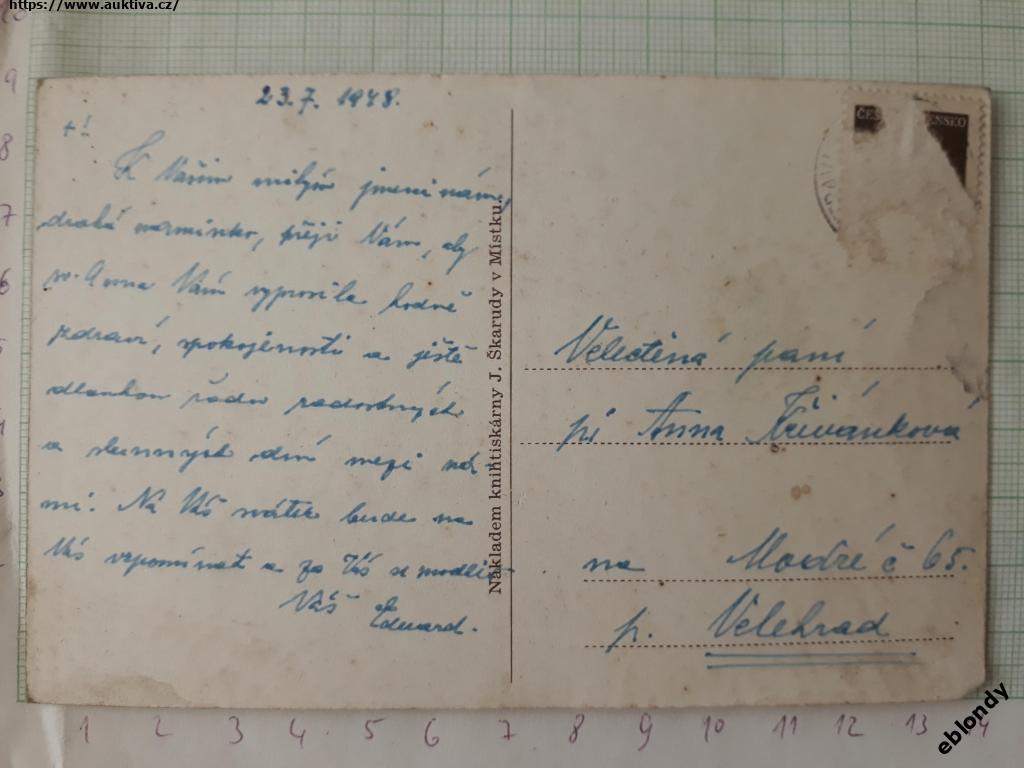 https://www.auktiva.cz/
23.7. 1948.
+!
K Vašim milým jmeninám,
drahá maminko, přeji Vám, aby
sv. Anna Vám vyprosila hodně
zdraví, spokojenosti a ještě
dlouhou řadu radostných
a slunných dní mezi ná-
mi. Na Váš svátek budu na
Vás vzpomínat a za Vás se modlit.
Váš Eduard.
Nákladem knihtiskárny J. Škarudy v Místku.
ČES ENSKO
Velectěná paní
pí Anna Křivánková
na Modré č 65.
p. Velehrad
10
9
8
7
6
1 2 3 4 5 6 7 8 9 10 11 12 13 14
eblondy